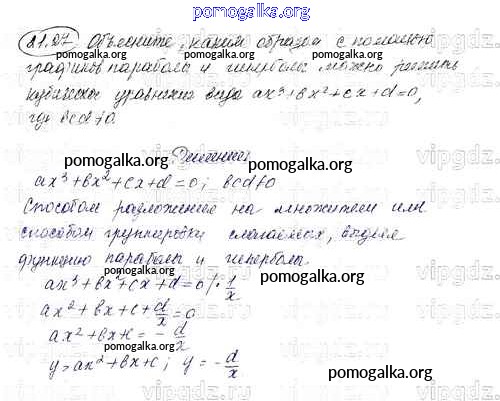 pomogalka.org
21.27 Объясните, каким образом с помощью
графиков параболы и гиперболы можно решить
кубическое уравнение вида ax³+bx²+cx+d=0,
где bcd≠0.
pomogalka.org
Решение
pomogalka.org
ax³+bx²+cx+d=0; bcd≠0
Способом разложения на множители или
способом группировки слагаемых, выделя
функцию параболы и гиперболы.
pomogalka.org
ax³+bx²+cx+d=0 /·1/x
ax²+bx+c+d/x=0
ax²+bx+c=-d/x
y=ax²+bx+c; y=-d/x
pomogalka.org
pomogalka.org